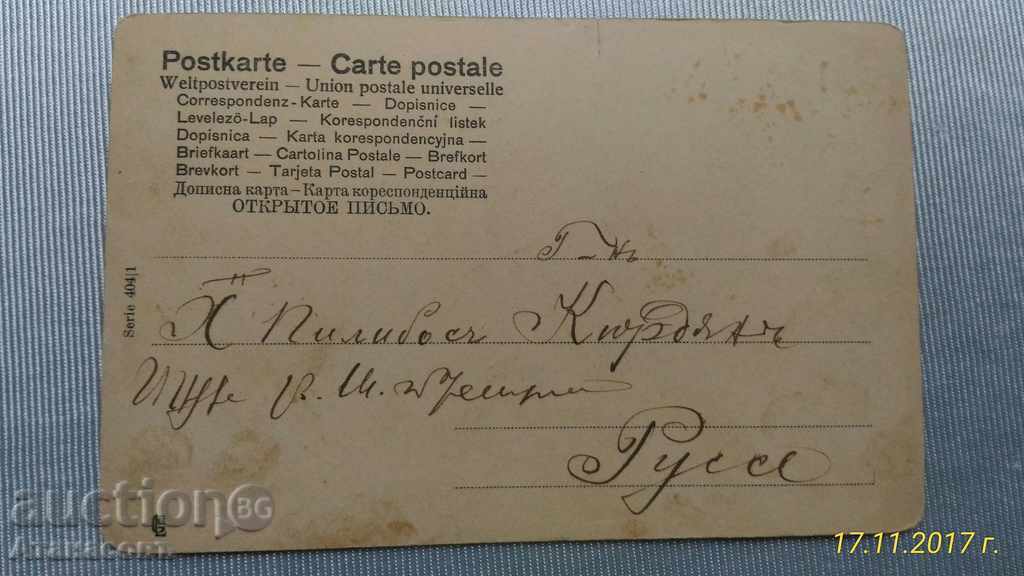 Postkarte — Carte postale
Weltpostverein — Union postale universelle
Correspondenz-Karte — Dopisnice —
Levelező-Lap — Korespondenční listek
Dopisnica — Karta korespondencyjna —
Briefkaart — Cartolina Postale — Brefkort
Brevkort — Tarjeta Postal — Postcard —
Дописна карта — Карта кореспонденційна
ОТКРЫТОЕ ПИСЬМО.
Serie 404|1
Г-нъ
Х Пилибосъ Кюрдянъ
Руссе
auction BG
Атанасовъ
17.11.2017 г.